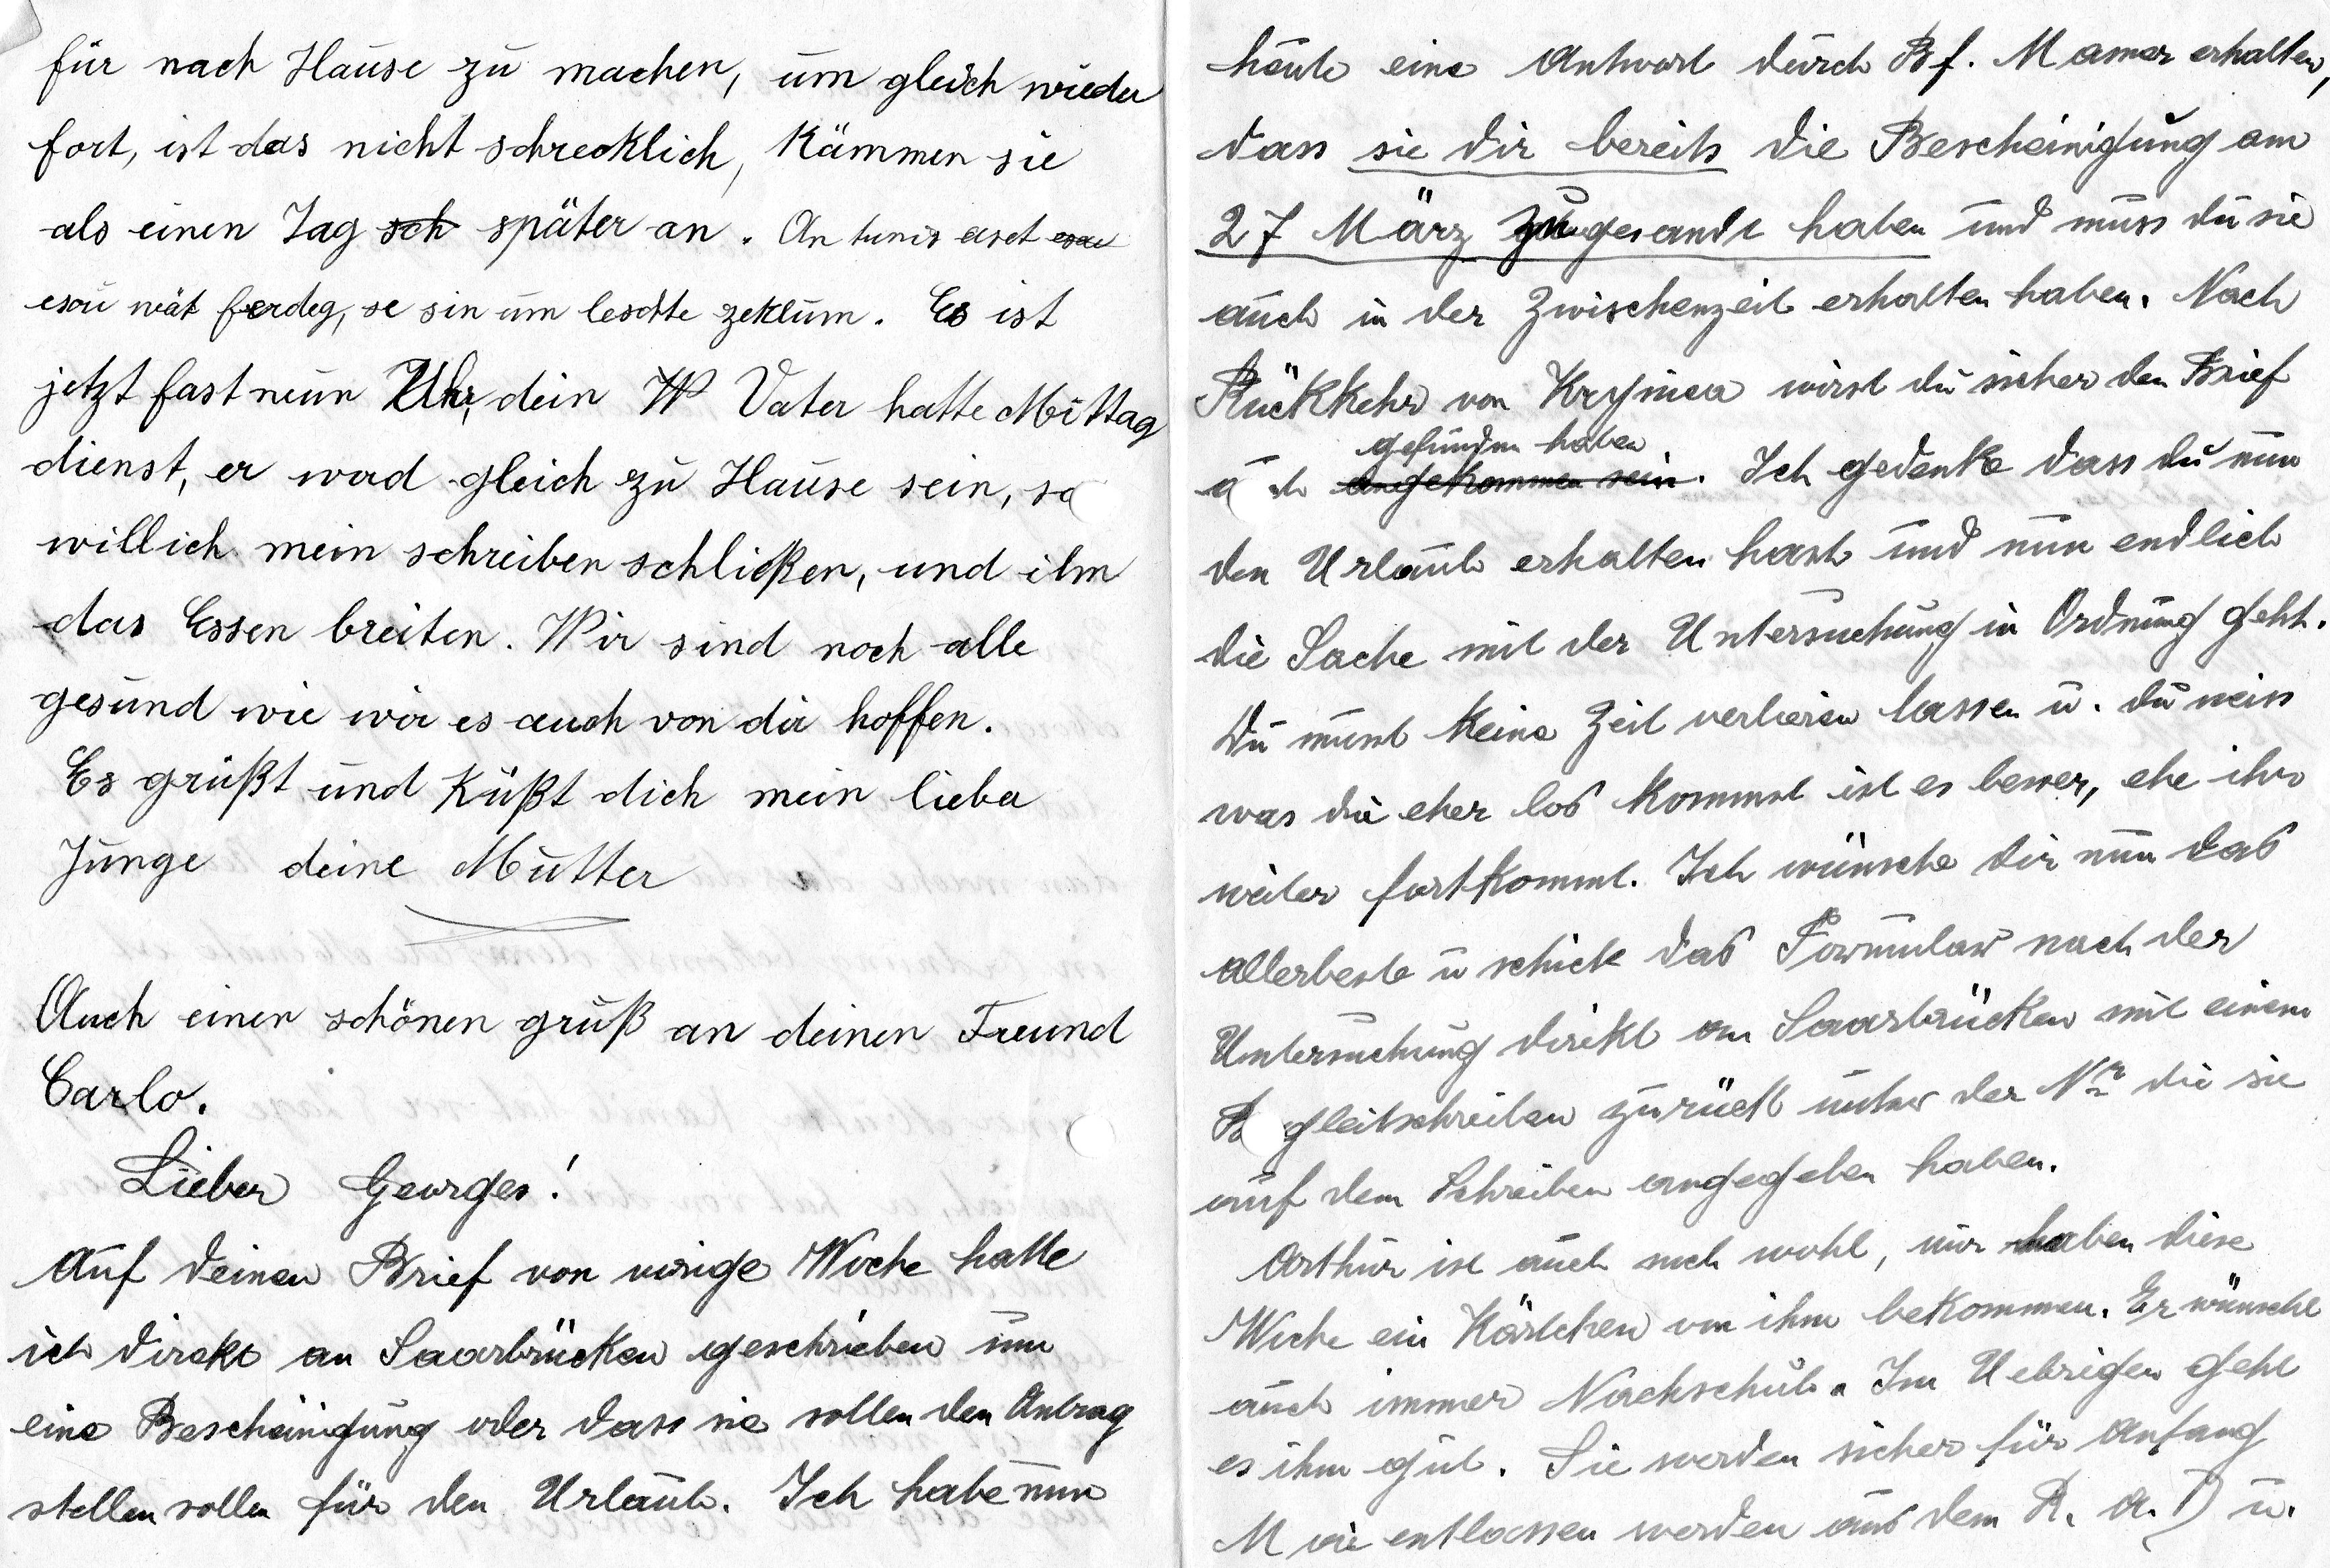 für nach Hause zu machen, um gleich wieder
fort, ist das nicht schrecklich, Kämmen sie
als einen Tag sch später an. An tunis aset
esou wät ferdeg, se sin um leschte zeklum. Es ist
jetzt fast neun Uhr, dein W Vater hatte Mittag
dienst, er word gleich zu Hause sein, so
will ich mein schreiben schließen, und ihm
das Essen breiten. Wir sind noch alle
gesund wie wir es auch von dir hoffen.
Es grüßt und Küßt dich mein lieber
Junge deine Mutter
Auch einen schönen gruß an deinen Freund
Carlo.
Lieber Georges!
Auf deinen Brief von vorige Woche hatte
ich direkt an Saarbrücken geschrieben um
eine Bescheinigung oder dass sie sollen den Antrag
stellen sollen für den Urlaub. Ich habe nun
heute eine Antwort durch Bf. Mamer erhalten,
dass sie dir bereits die Bescheinigung am
27 März zugesandt haben und muss du sie
auch in der Zwischenzeit erhalten haben. Nach
Rückkehr von Krynica wirst du sicher den Brief
gefunden haben
auch angekommen sein. Ich gedenke dass du nun
den Urlaub erhalten hast und nun endlich
die Sache mit der Untersuchung in Ordnung geht.
Du musst keine Zeit verlieren lassen u. du weiss
was du eher los kommst ist es besser, ehe ihr
weiter fortkommt. Ich wünsche dir nun das
allerbeste u schick das Formular nach der
Untersuchung direkt an Saarbrücken mit einem
Begleitschreiben zurück unter der Nr die sie
auf dem Schreiben angegeben haben.
Arthur ist auch noch wohl, wir haben diese
Woche ein Kärtchen von ihm bekommen. Er wünscht
auch immer Nachschub. Im Uebrigen geht
es ihm gut. Sie werden sicher für Anfang
Mai entlassen werden aus dem R. A. D u.